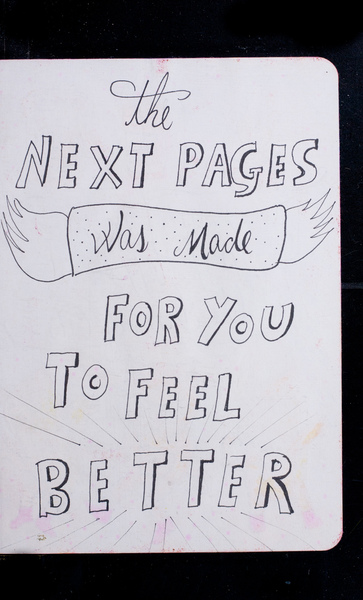 the
NEXT PAGES
Was Made
FOR YOU
TO FEEL
BETTER